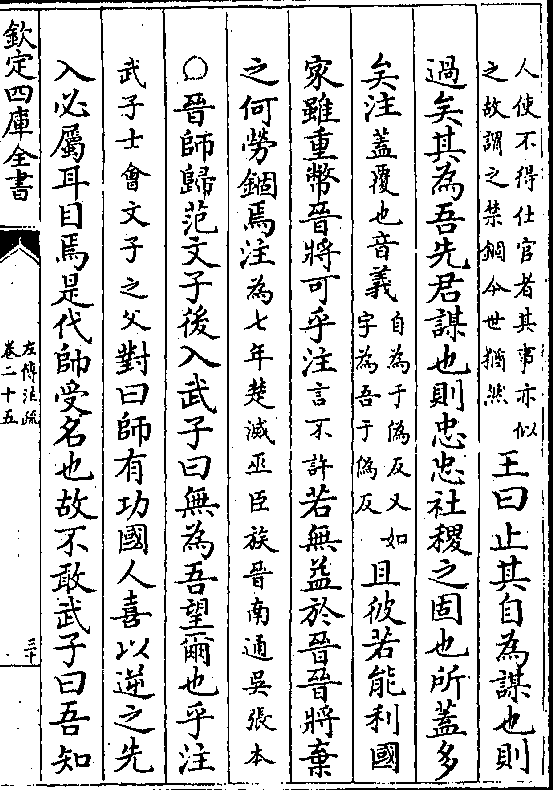 人使不得仕官者其事亦似
之故謂之禁錮今世猶然
王曰止其自為謀也則
過矣其為吾先君謀也則忠忠社稷之固也所蓋多
矣注蓋覆也音義
自為于偽反又如
字為吾于偽反
且彼若能利國
家雖重幣晉將可乎注言不許若無益於晉晉將棄
之何勞錮焉注為七年楚滅巫臣族晉南通吳張本
○晉師歸范文子後入武子曰無為吾望爾也乎注
武子士會文子之父對曰師有功國人喜以逆之先
入必屬耳目焉是代帥受名也故不敢武子曰吾知
欽定四庫全書
左傳注疏
卷二十五
三十